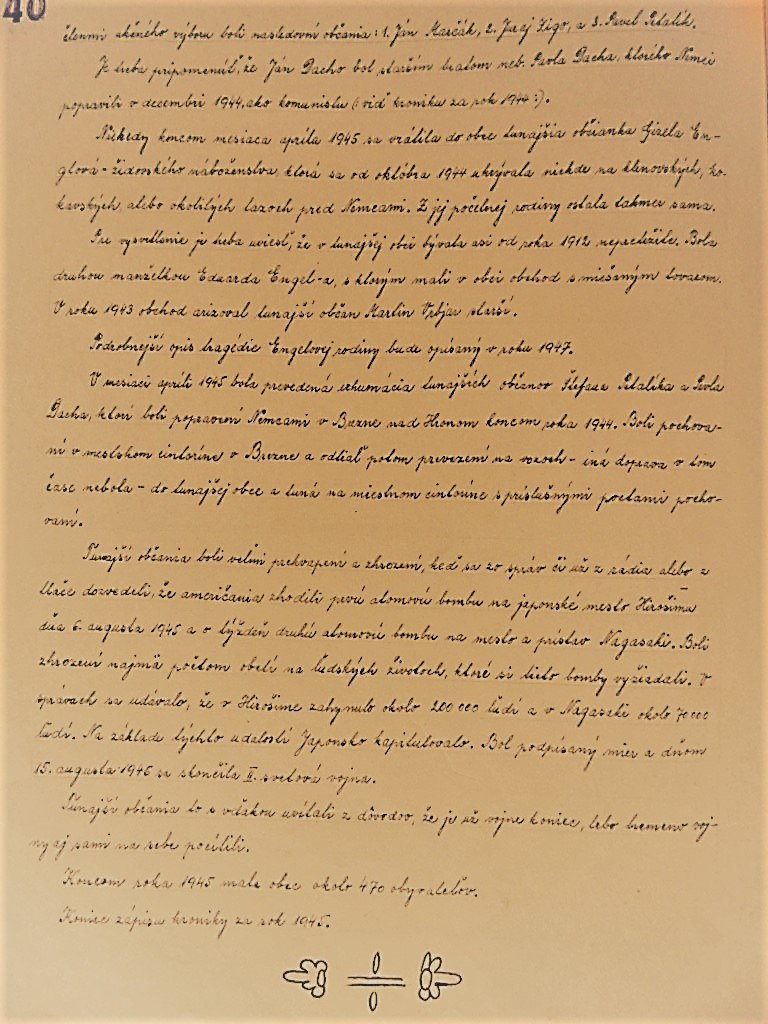 40
členmi akčného výboru boli nasledovní občania: 1. Ján Marčák, 2. Juraj Zigo, a 3. Pavel Petalík.
Je treba pripomenúť, že Ján Dacho bol starším bratom neb. Pavla Dacha, ktorého Nemci
popravili v decembri 1944, ako komunistu (: viď kroniku za rok 1944 :).
Niekedy koncom mesiaca apríla 1945 sa vrátila do obce tunajšia občianka Gizela En-
glová - židovského náboženstva, ktorá sa od októbra 1944 ukrývala niekde na klenovských, ko-
kavských, alebo okolitých lazoch pred Nemcami. Z jej početnej rodiny ostala takmer sama.
Pre vysvetlenie je treba uviesť, že v tunajšej obci bývala asi od roku 1912 nepretržite. Bola
druhou manželkou Eduarda Engel-a, s ktorým mali v obci obchod s miešaným tovarom.
V roku 1943 obchod arizoval tunajší občan Martin Vrbjar starší.
Podrobnejší opis tragédie Engelovej rodiny bude opísaný v roku 1947.
V mesiaci apríli 1945 bola prevedená exhumácia tunajších občanov Štefana Petalíka a Pavla
Dacha, ktorí boli popravení Nemcami v Brezne nad Hronom koncom roka 1944. Boli pochova-
ní v mestskom cintoríne v Brezne a odtiaľ potom prevezení na vozoch - iná doprava v tom
čase nebola - do tunajšej obce a tuná na miestnom cintoríne s príslušnými poctami pocho-
vaní.
Tunajší občania boli veľmi prekvapení a zhrození, keď sa zo správ či už z rádia alebo z
tlače dozvedeli, že američania zhodili prvú atomovú bombu na japonské mesto Hirošimu
dňa 6. augusta 1945 a o týždeň druhú atomovú bombu na mesto a prístav Nagasaki. Boli
zhrození najmä počtom obetí na ľudských životoch, ktoré si tieto bomby vyžiadali. V
správach sa udávalo, že v Hirošime zahynulo okolo 200 000 ľudí a v Nagasaki okolo 70 000
ľudí. Na základe týchto udalostí Japonsko kapitulovalo. Bol podpísaný mier a dňom
15. augusta 1945 sa skončila II. svetová vojna.
Tunajší občania to s vďakou uvítali z dôvodov, že je už vojne koniec, lebo bremeno voj-
ny aj sami na sebe pocítili.
Koncom roka 1945 mala obec okolo 470 obyvateľov.
Koniec zápisu kroniky za rok 1945.